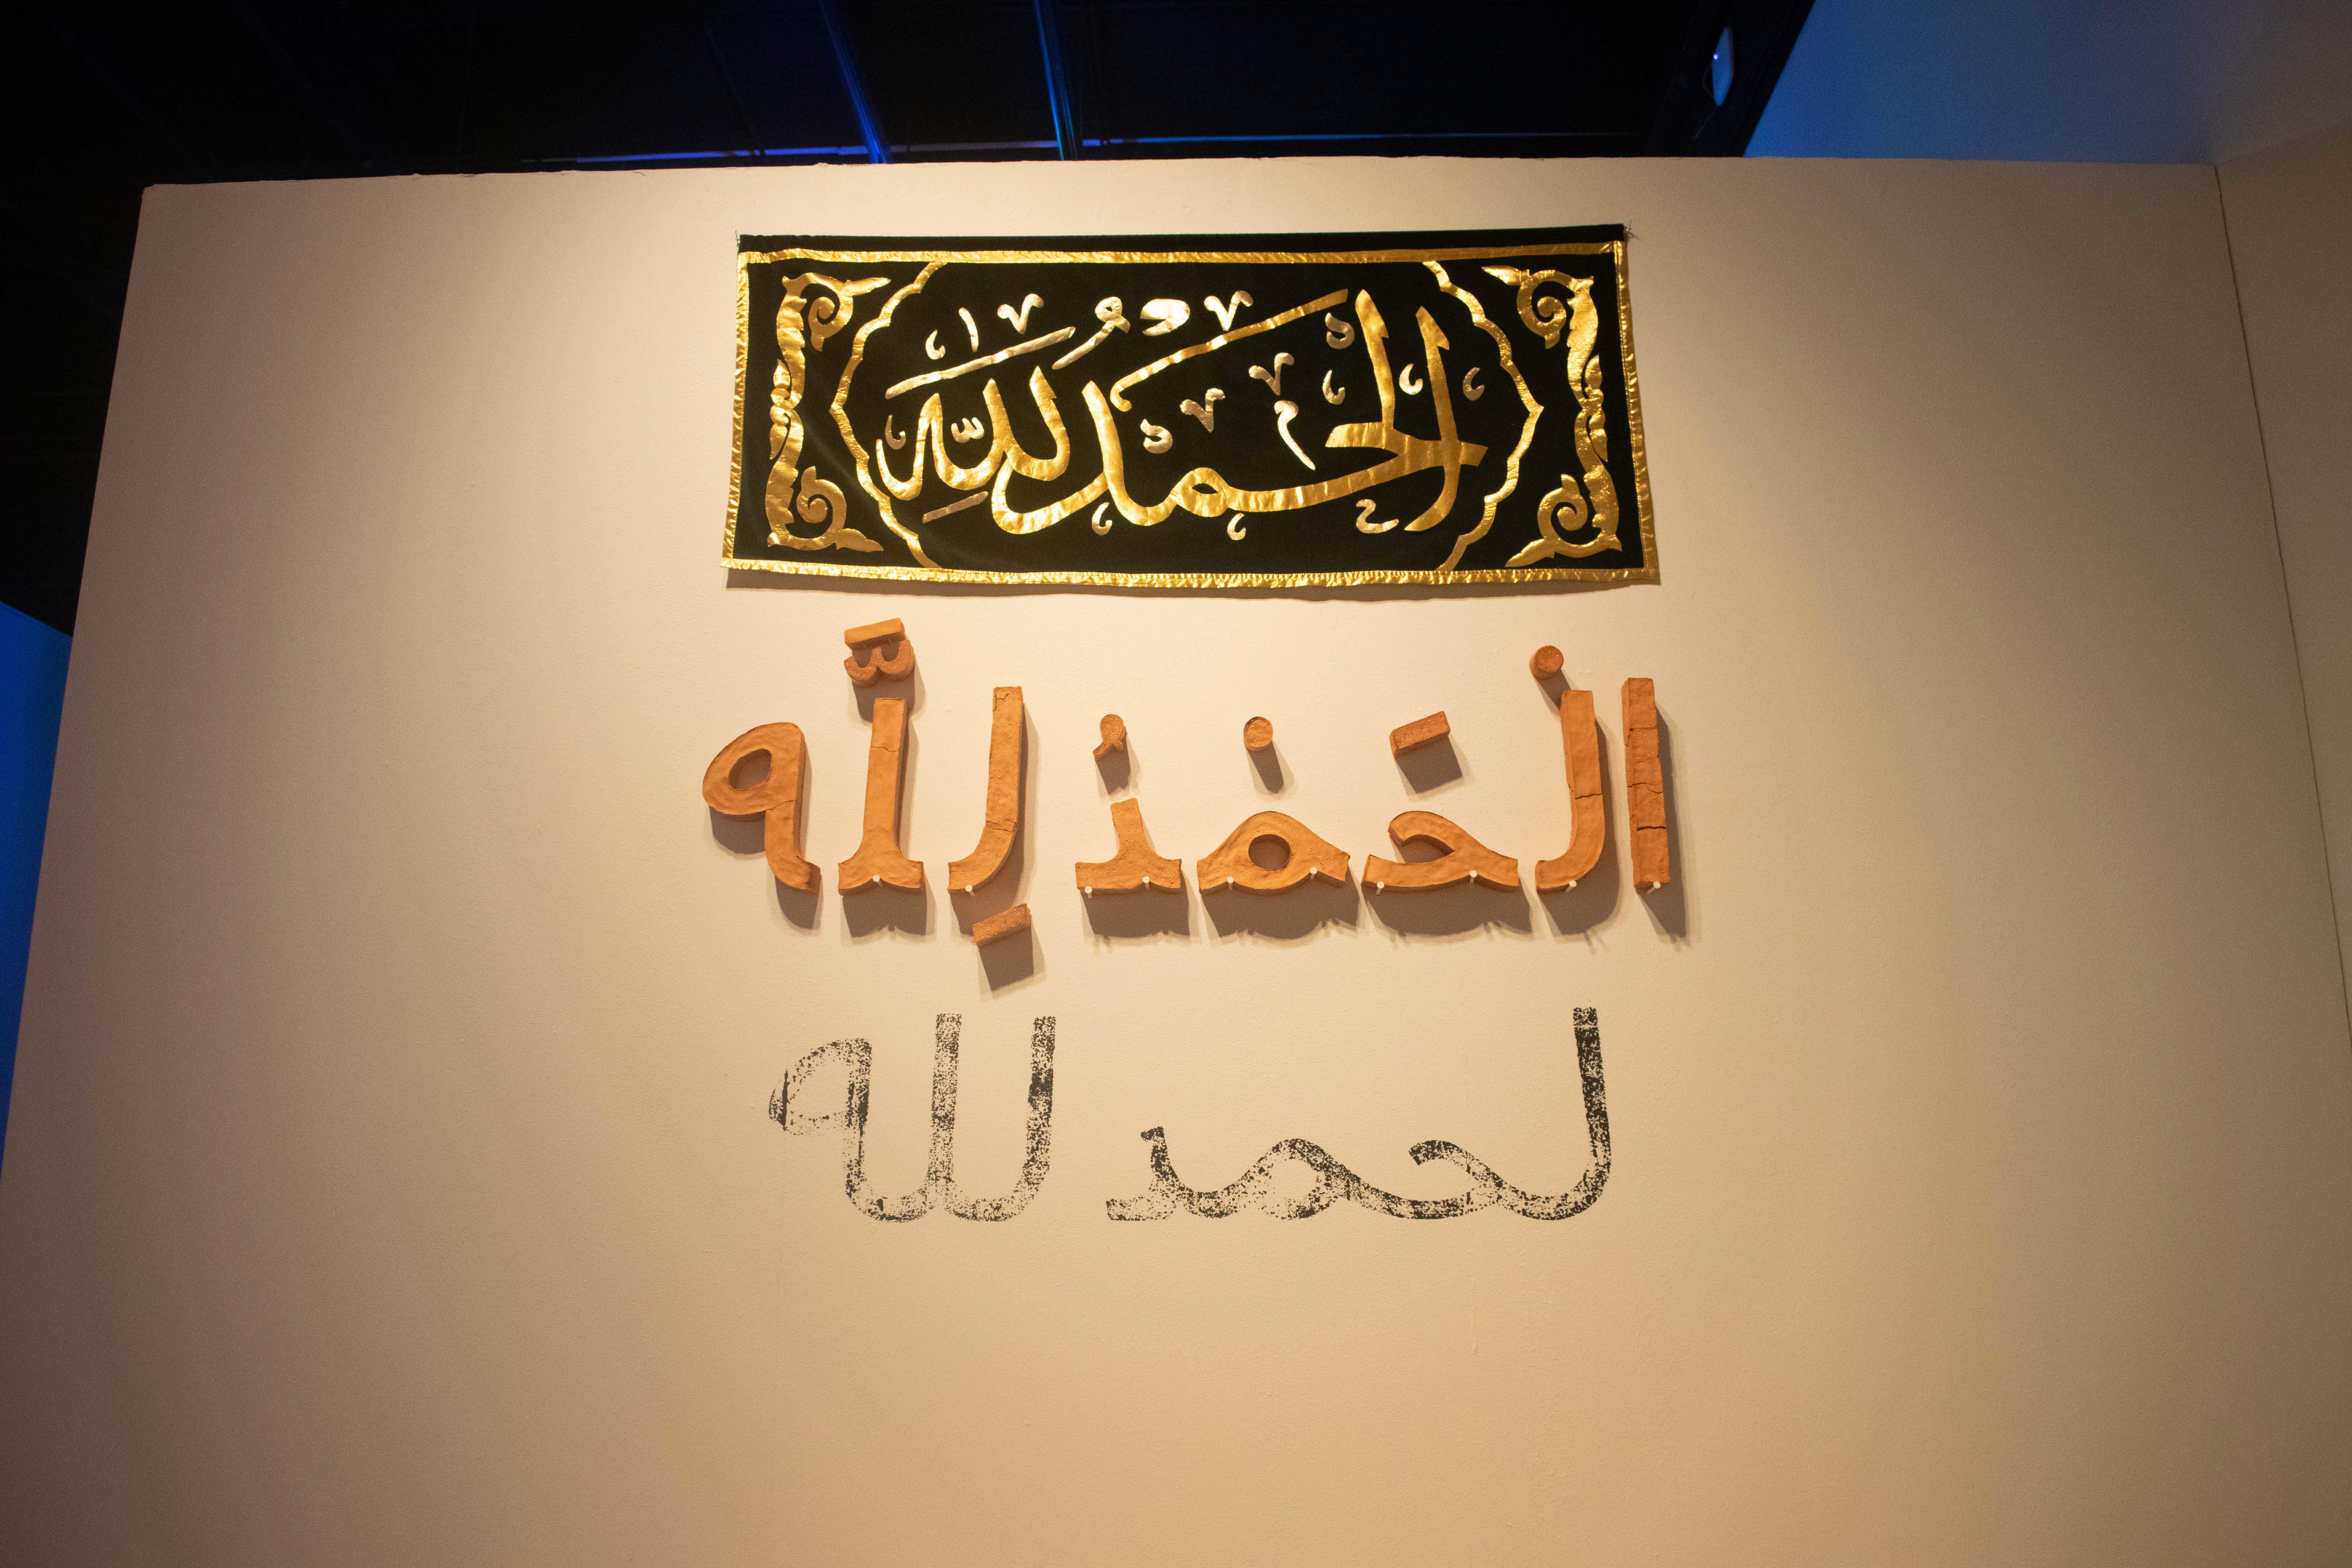 الحمدُ للّٰهِ
الْحَمْدُ لِلَّه
لحمد لله